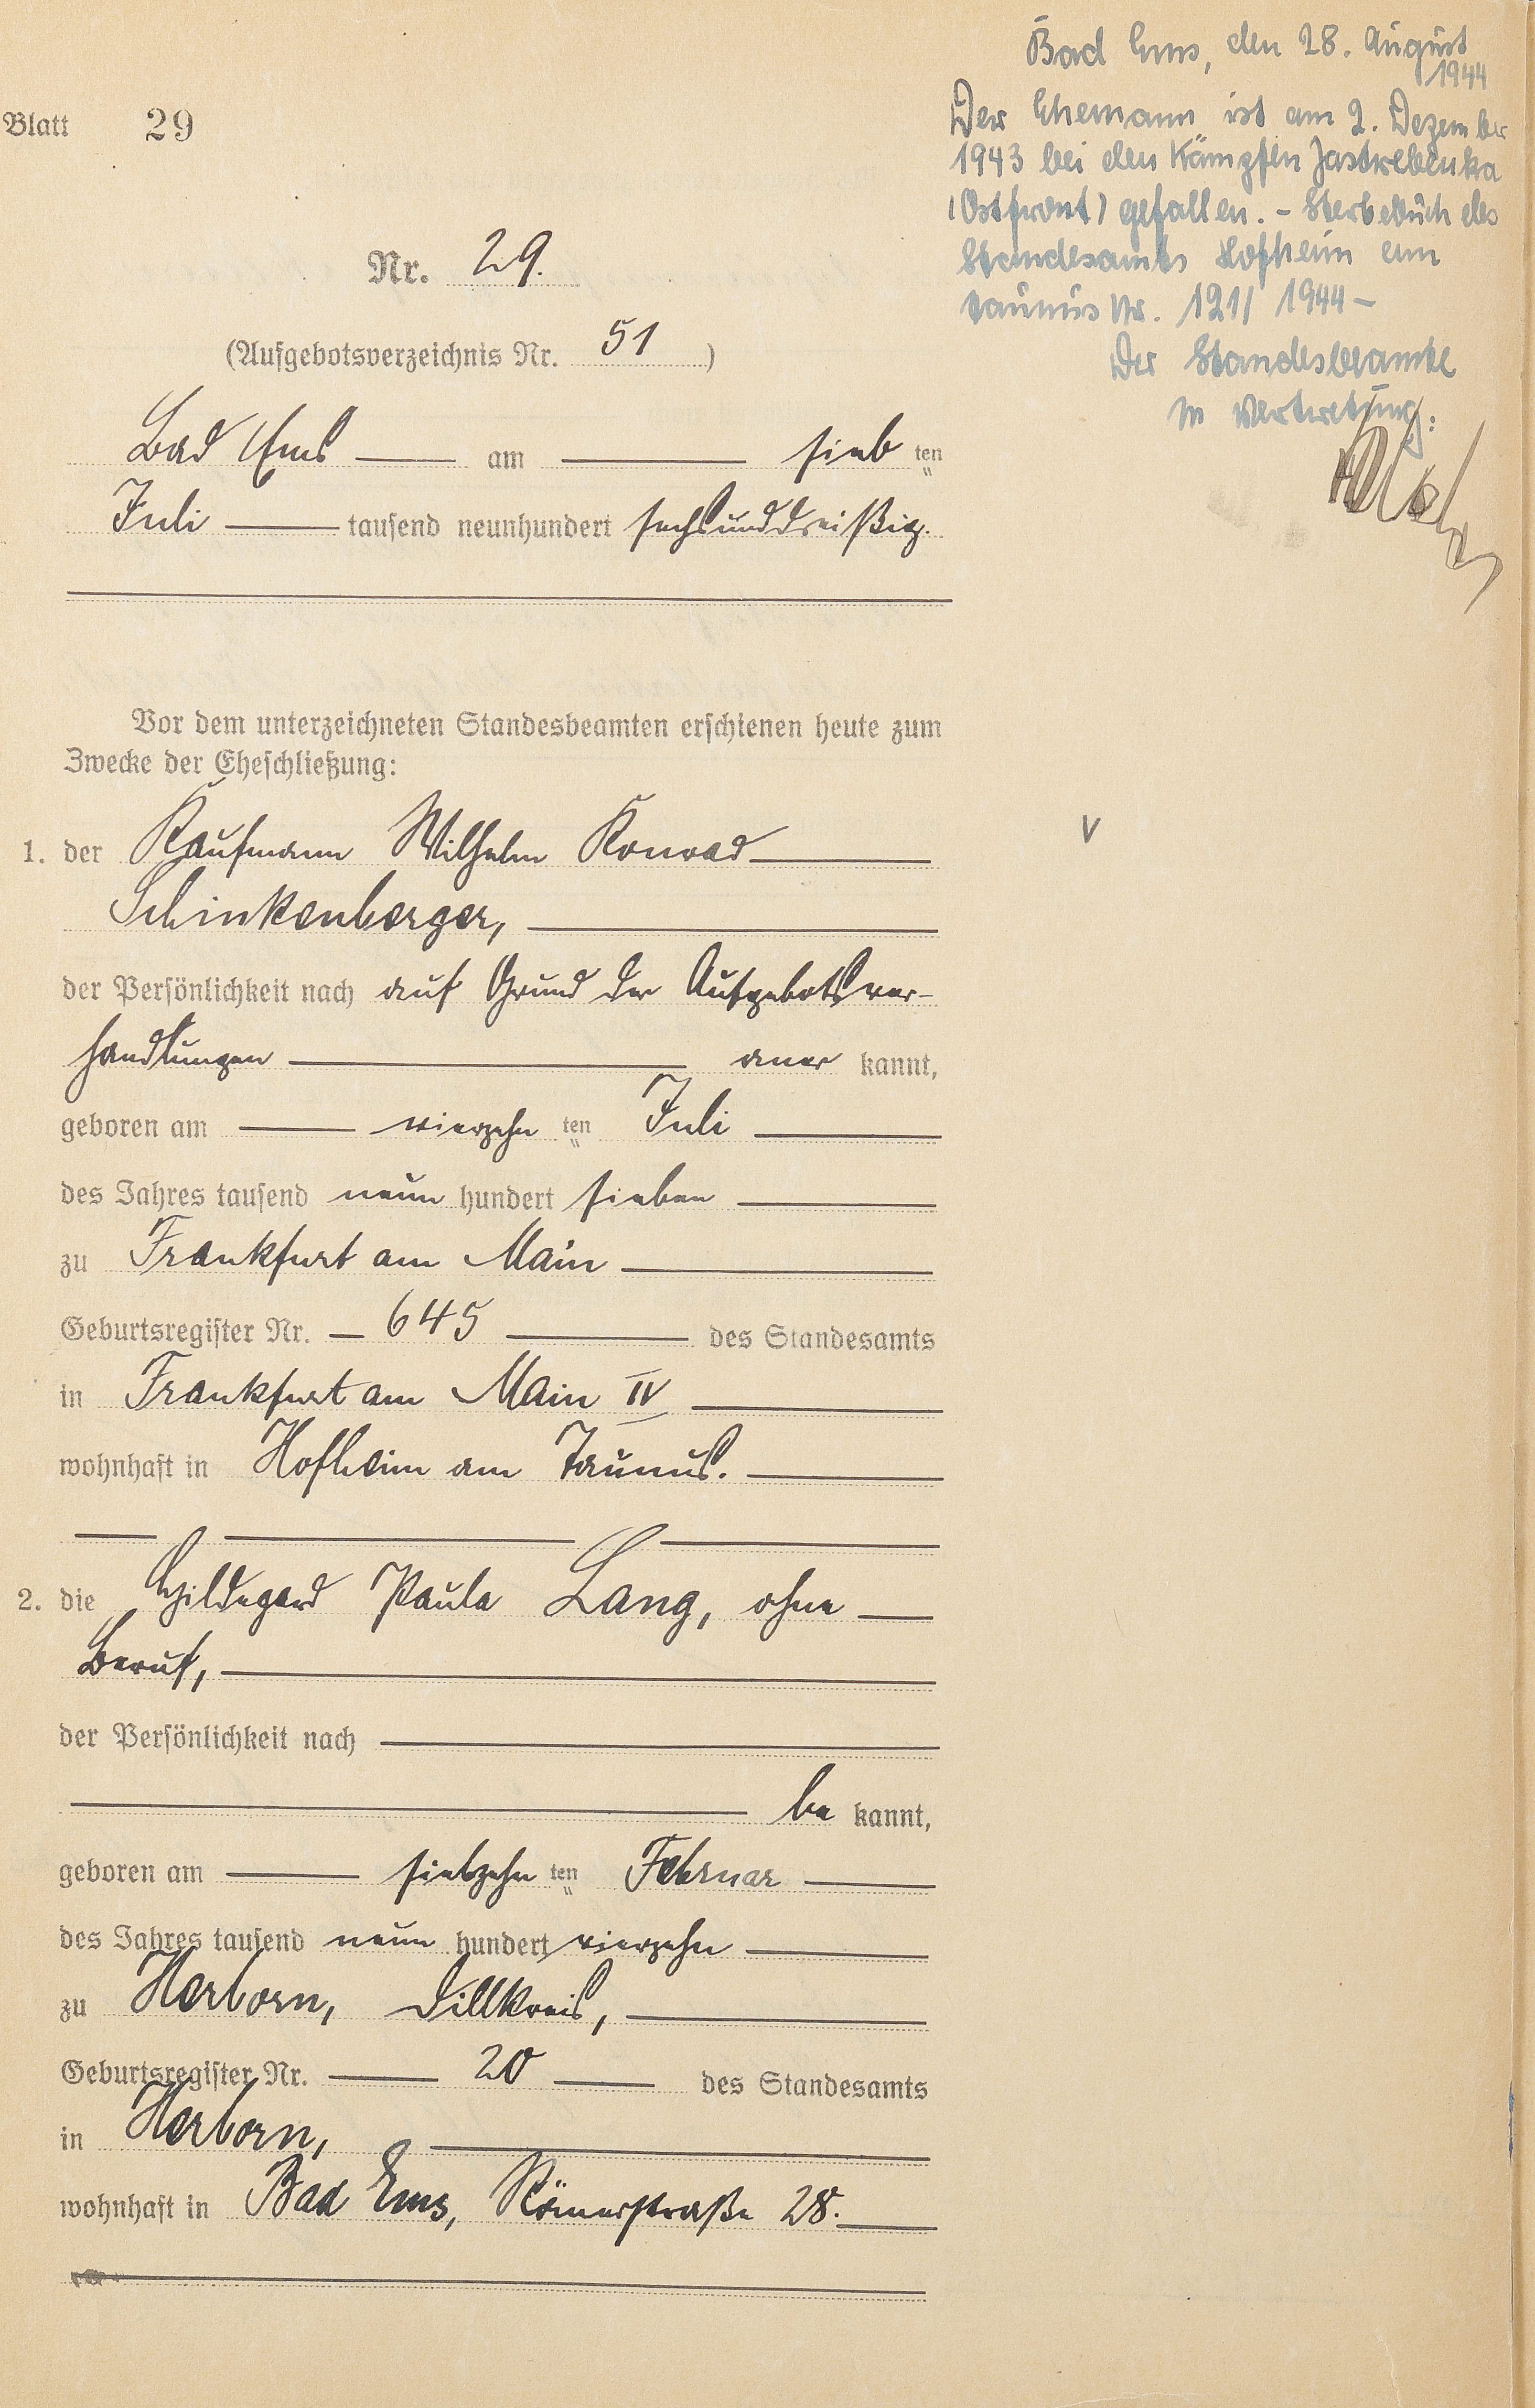 Blatt 29
Nr. 29.
(Aufgebotsverzeichnis Nr. 51)
Bad Ems am sieb ten
Juli tausend neunhundert sechsunddreißig.
Vor dem unterzeichneten Standesbeamten erschienen heute zum
Zwecke der Eheschließung:
1. der Kaufmann Wilhelm Konrad
Schinkenberger,
der Persönlichkeit nach auf Grund der Aufgebotsver-
handlungen aner kannt,
geboren am vierzehn ten Juli
des Jahres tausend neun hundert sieben
zu Frankfurt am Main
Geburtsregister Nr. 645 des Standesamts
in Frankfurt am Main IV
wohnhaft in Hofheim am Taunus.
2. die Hildegard Paula Lang, ohne
Beruf,
der Persönlichkeit nach
be kannt,
geboren am siebzehn ten Februar
des Jahres tausend neun hundert vierzehn
zu Herborn, Dillkreis,
Geburtsregister Nr. 20 des Standesamts
in Herborn,
wohnhaft in Bad Ems, Römerstraße 28.
Bad Ems, den 28. August
1944
Der Ehemann ist am 2. Dezember
1943 bei den Kämpfen Jastrebenka
(Ostfront) gefallen. - Sterbebuch des
Standesamts Hofheim am
Taunus Nr. 121/1944 -
Der Standesbeamte
In Vertretung:
V